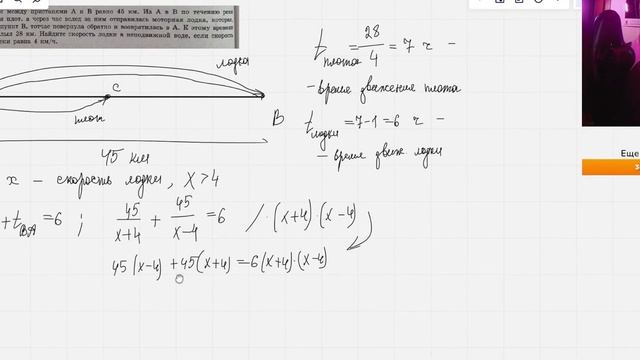 между пристанями А и В равно 45 км. Из А в В по течению
плот, а через час вслед за ним отправилась моторная лодка,
пункт В, тотчас повернула обратно и возвратилась в А. К этому времени
28 км. Найдите скорость лодки в неподвижной воде, если скорость
равна 4 км/ч.
t плота = 28/4 = 7 ч –
– время движения плота
лодка
C
плот
B
t лодки = 7-1 = 6 ч –
– время движ. лодки
45 км
x – скорость лодки, x > 4
+ t BA = 6 ; 45/(x+4) + 45/(x-4) = 6 / · (x+4) · (x-4)
45(x-4) + 45(x+4) = 6(x+4) · (x-4)
Еще